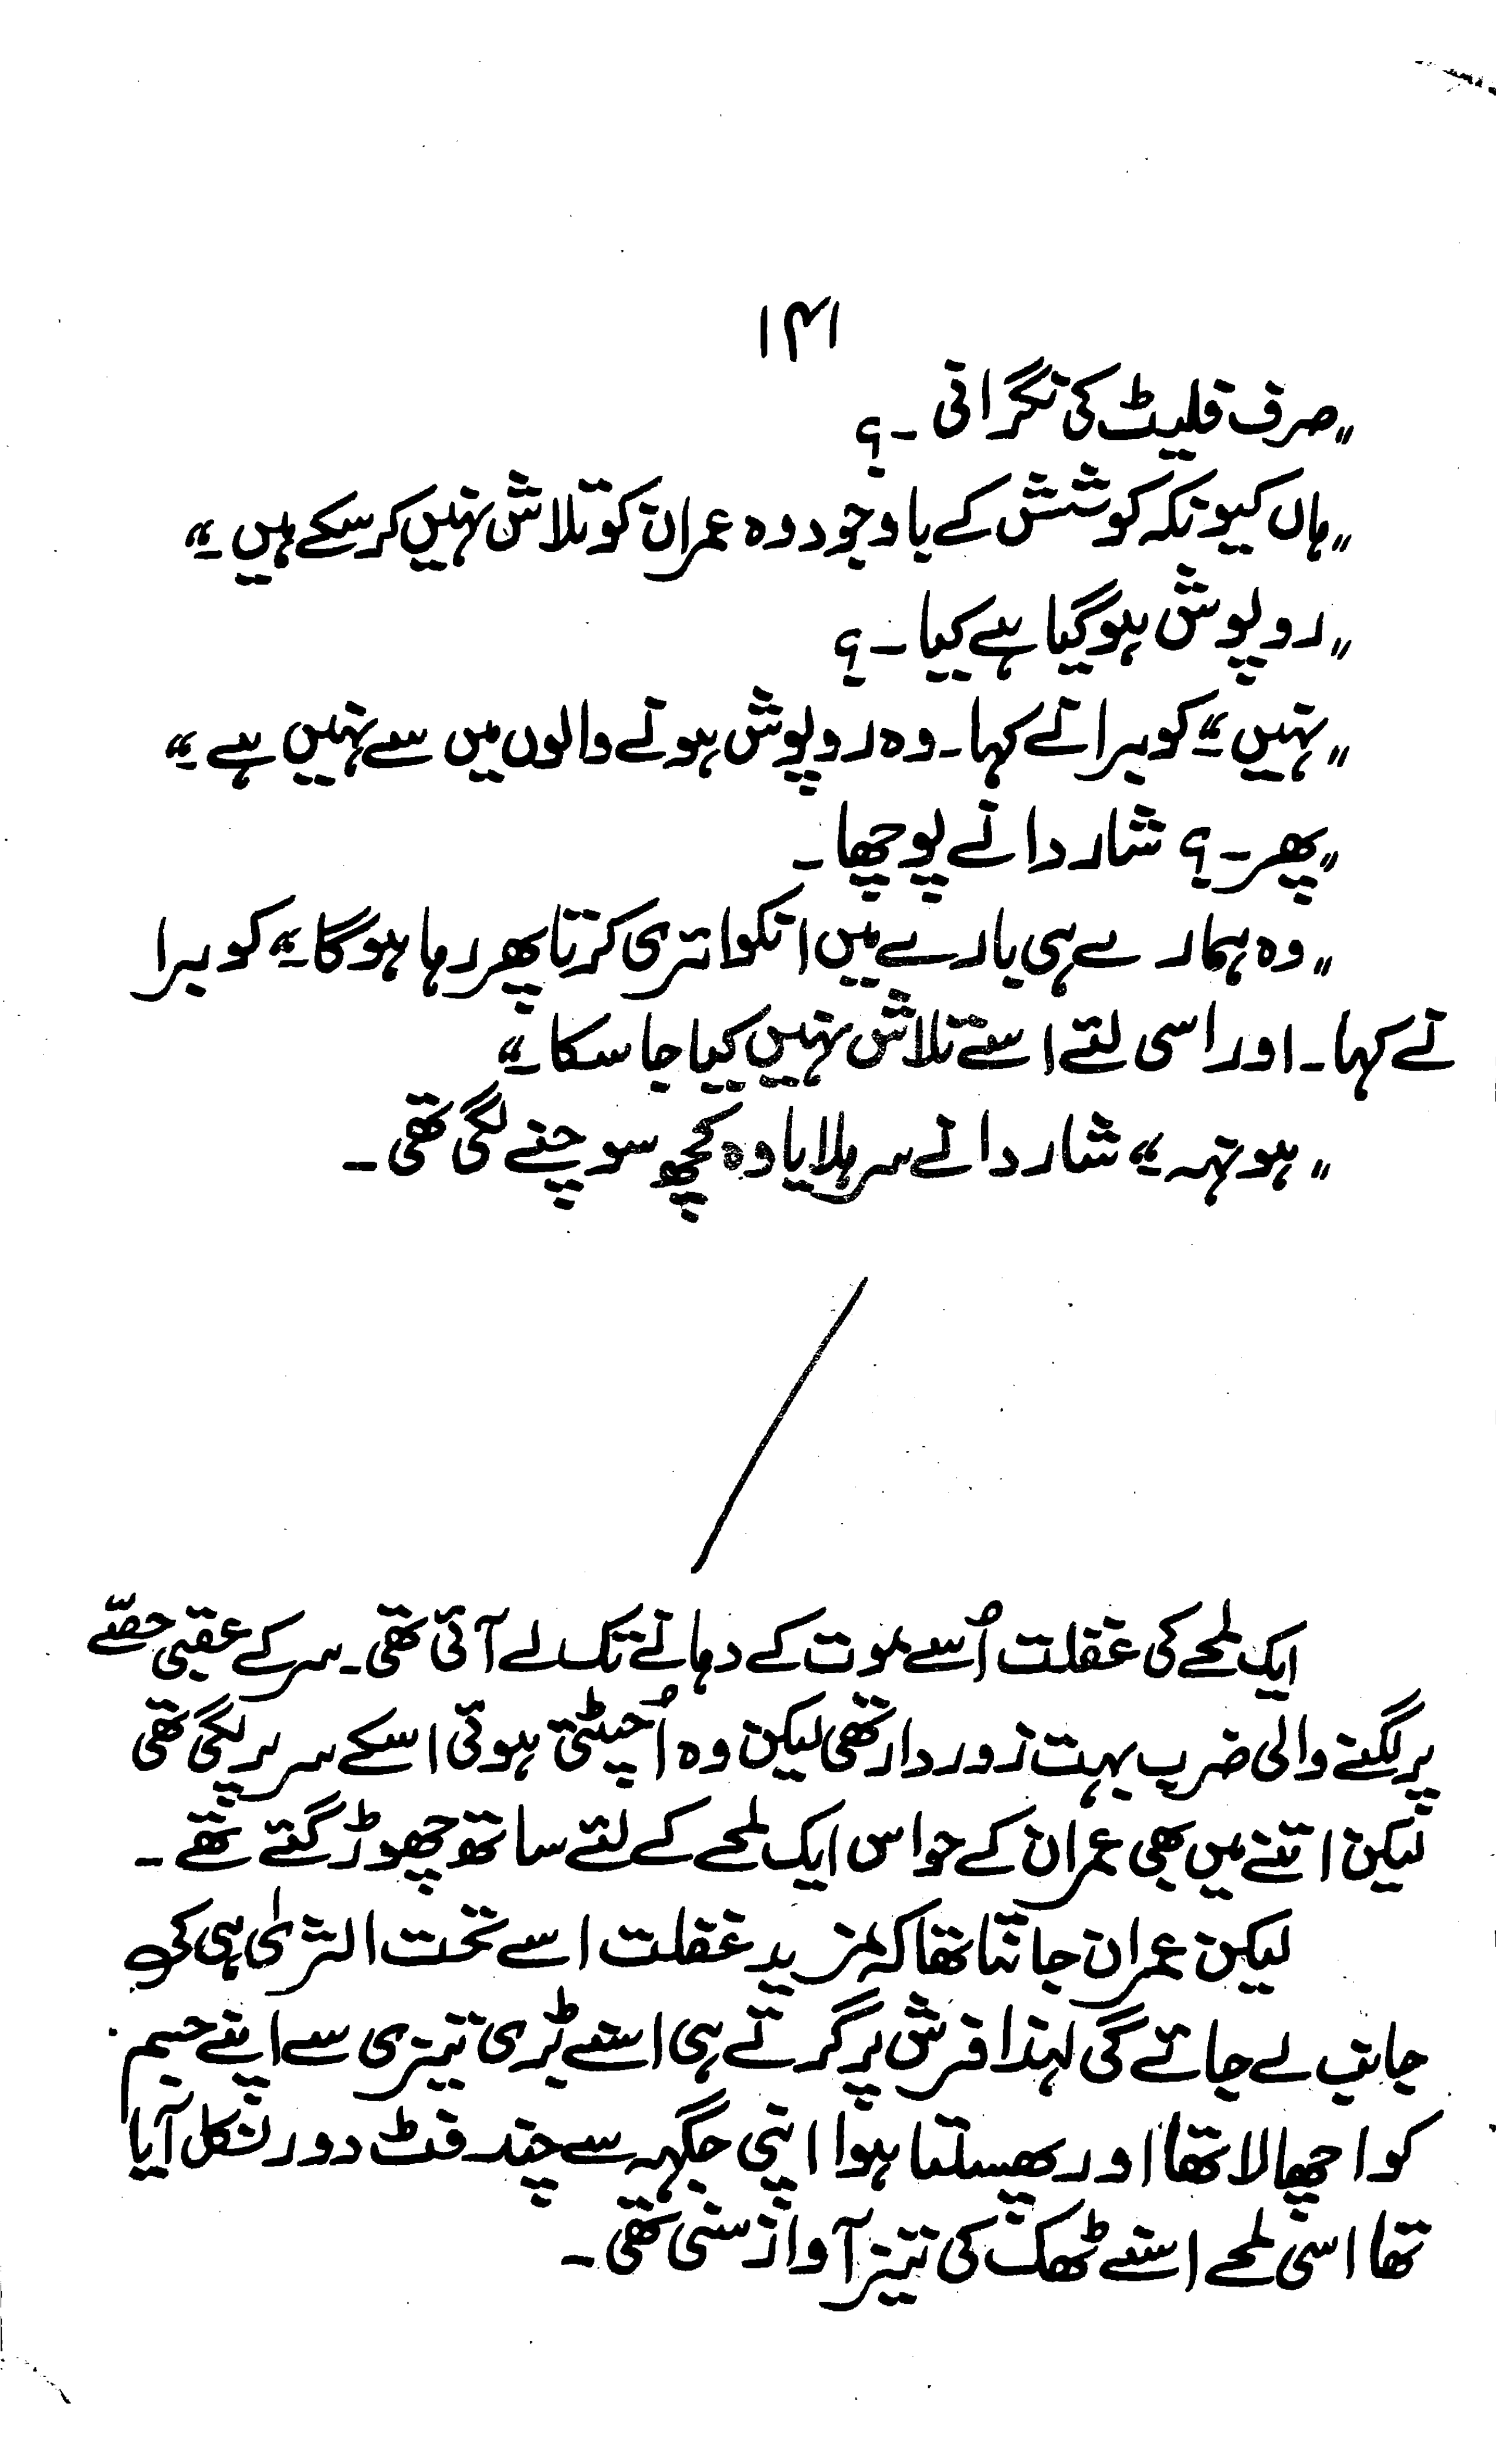 ۱۴۱
"صرف فلیٹ کی نگرانی ۔؟
"ہاں کیونکہ کوشش کے باوجود وہ عمران کو تلاش نہیں کر سکے ہیں ۔"
"روپوش ہوگیا ہے کیا ۔؟
"نہیں ۔" کوبرا نے کہا ۔ وہ روپوش ہونے والوں میں سے نہیں ہے ۔"
"پھر ۔؟ شاردا نے پوچھا ۔
"وہ ہمارے ہی بارے میں انکوائری کرتا پھر رہا ہوگا ۔" کوبرا
نے کہا ۔ اور اسی لئے اسے تلاش نہیں کیا جا سکا ۔"
"ہونہہ ۔" شاردا نے سر ہلایا وہ کچھ سوچنے لگی تھی ۔
ایک لمحے کی غفلت اُسے موت کے دہانے تک لے آئی تھی ۔ سر کے عقبی حصّے
پر لگنے والی ضرب بہت زوردار تھی لیکن وہ اُچٹتی ہوئی اسکے سر پر لگی تھی
لیکن اتنے میں بھی عمران کے حواس ایک لمحے کے لئے ساتھ چھوڑ گئے تھے ۔
لیکن عمران جانتا تھا کہ مزید غفلت اسے تحت الثریٰ ہی کی
جانب لے جائے گی لہذا فرش پر گرتے ہی اسنے بڑی تیزی سے اپنے جسم
کو اچھالا تھا اور پھسلتا ہوا اپنی جگہہ سے چند فٹ دور نکل آیا
تھا اسی لمحے اسنے ٹھک کی تیز آواز سنی تھی ۔